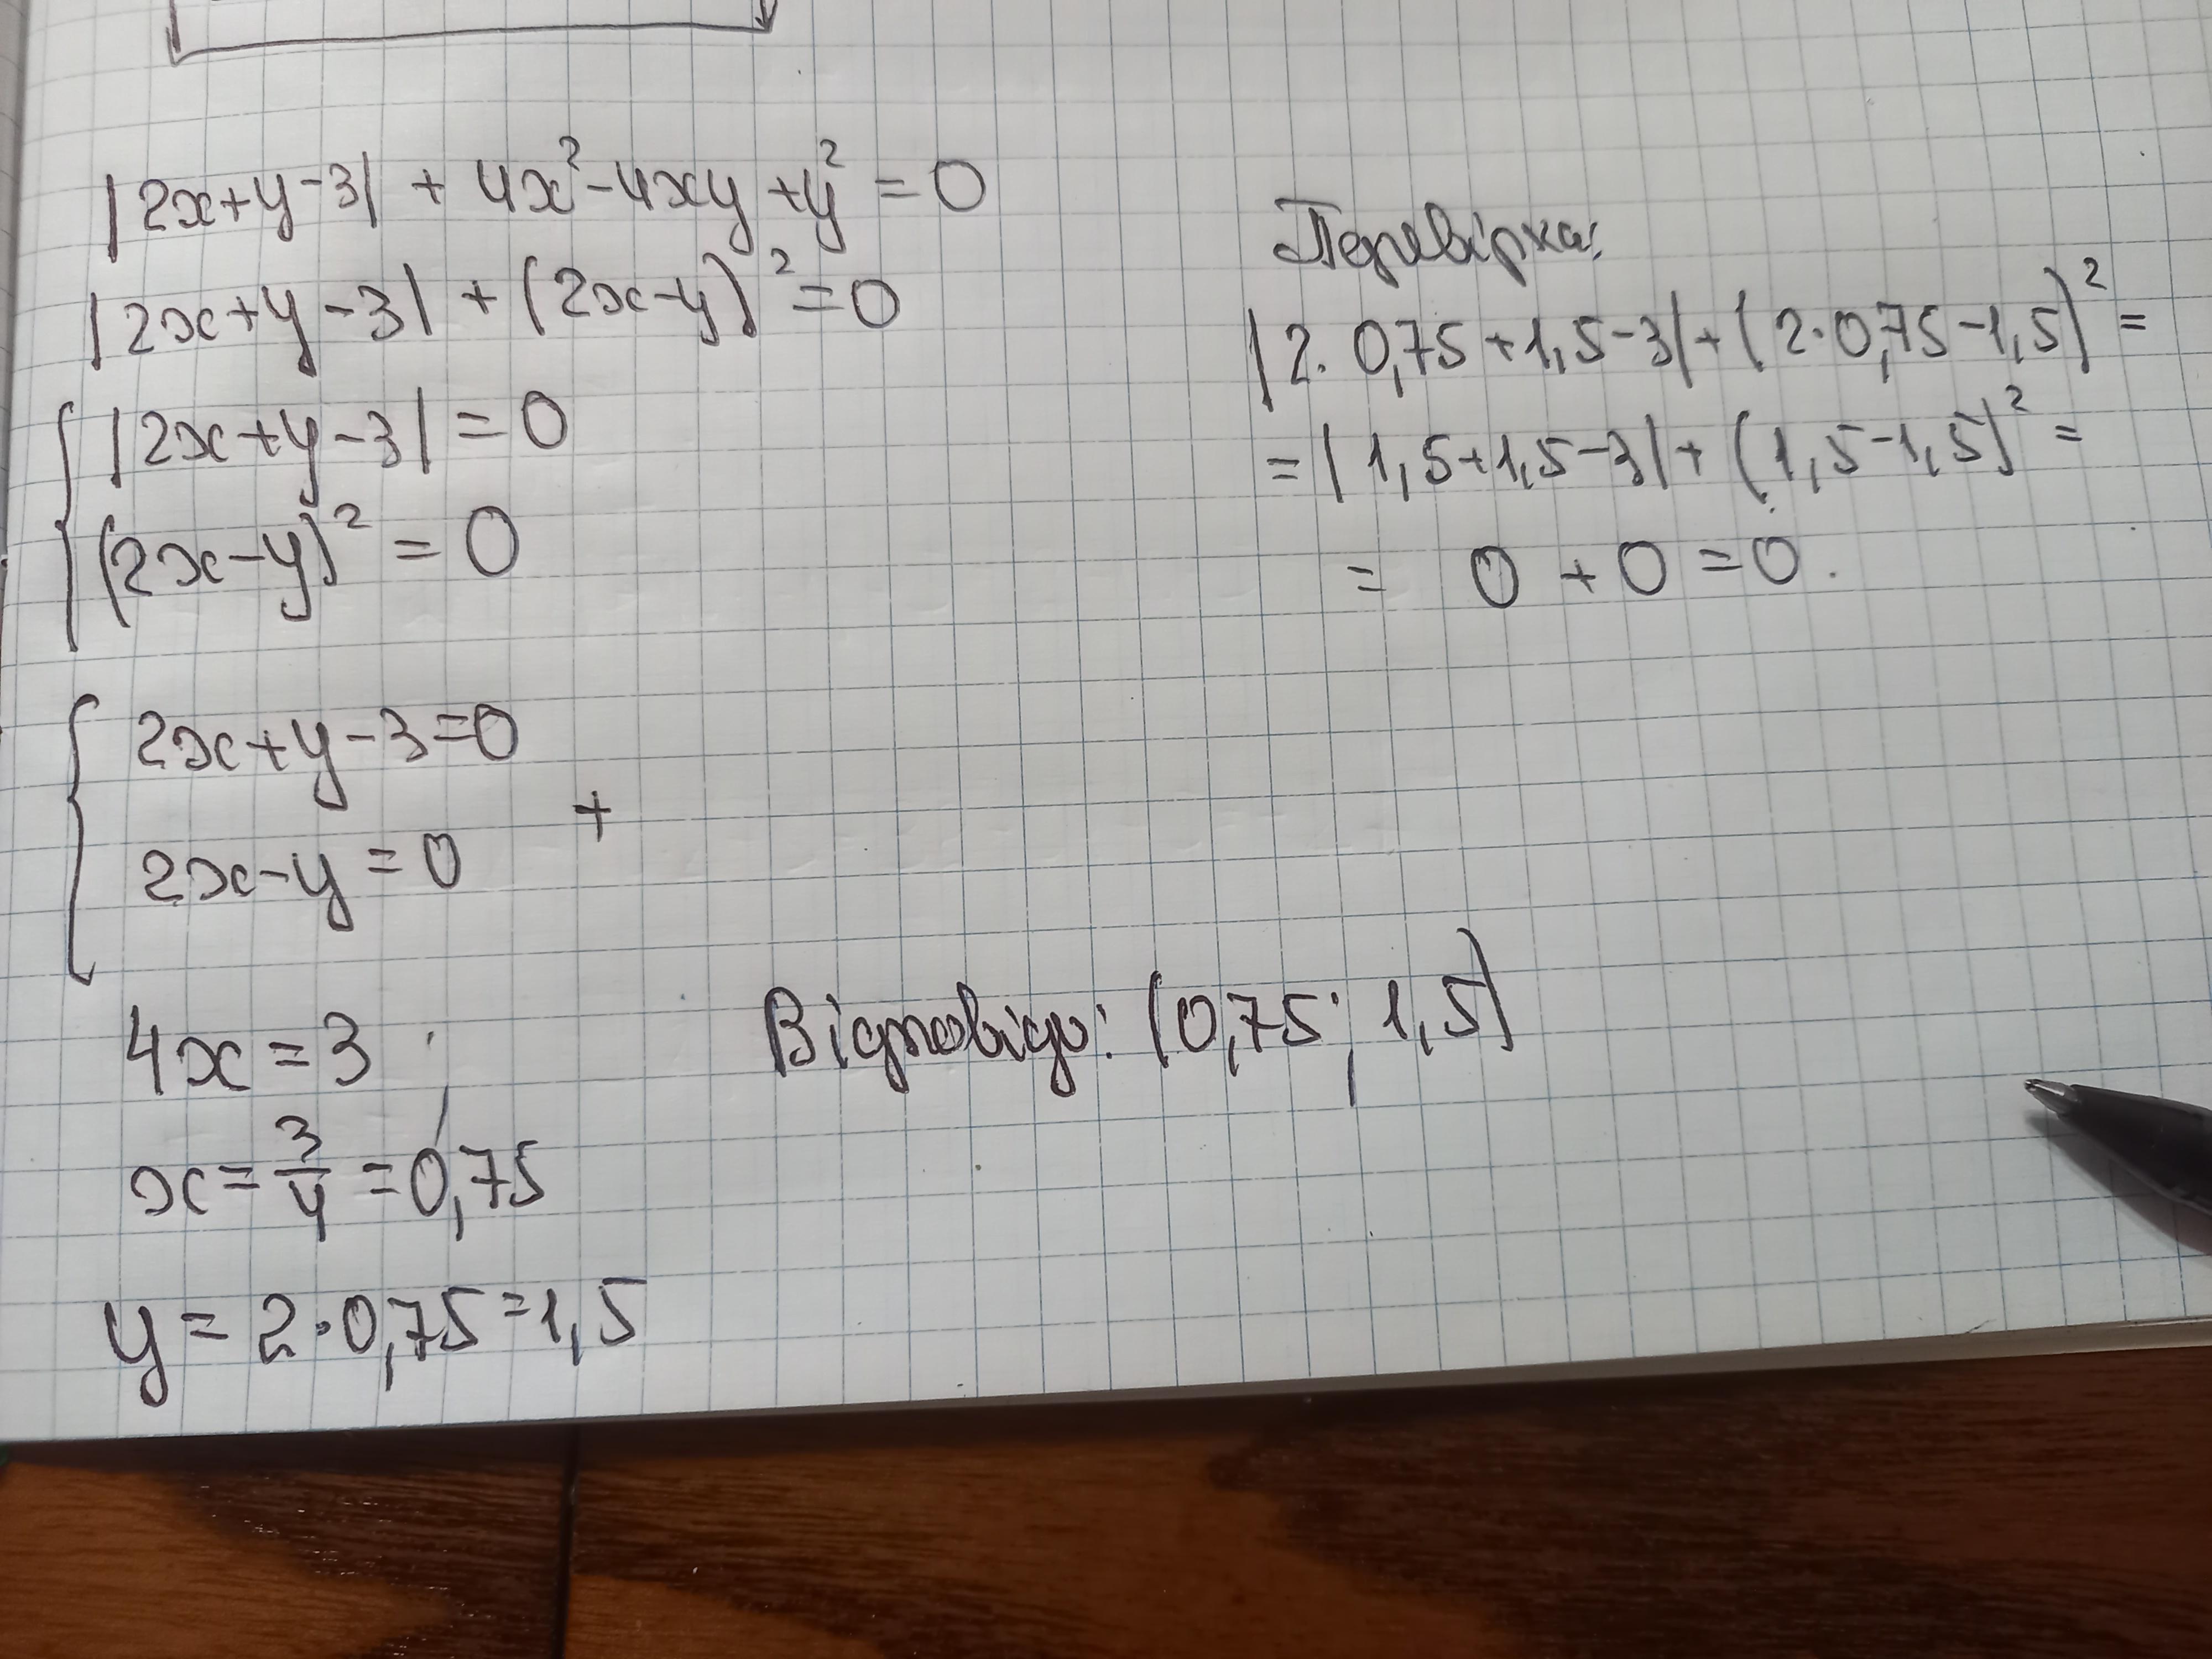 |2x+y-3| + 4x²-4xy+y² = 0
|2x+y-3| + (2x-y)² = 0
|2x+y-3| = 0
(2x-y)² = 0
2x+y-3=0
+
2x-y=0
4x=3
x=3/4=0,75
y=2·0,75=1,5
Перевірка:
|2·0,75+1,5-3|+(2·0,75-1,5)²=
=|1,5+1,5-3|+(1,5-1,5)²=
= 0+0=0.
Відповідь: (0,75; 1,5)